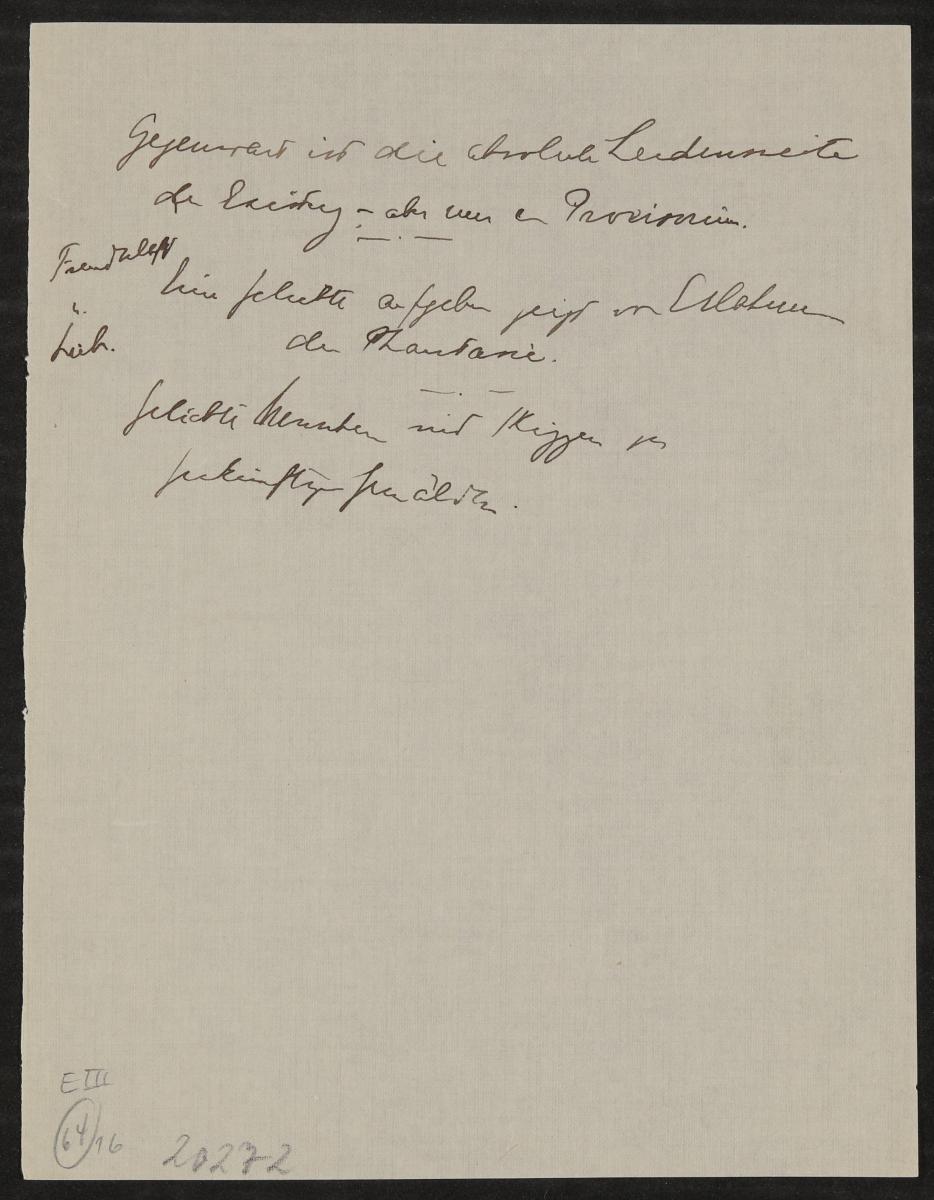 Gegenwart ist die absolute Leidensseite
der Existenz – aber nur ein Provisorium.
Freundschaft
u.
Liebe.
Eine Geliebte aufgeben zeigt von Erlahmen
der Phantasie.
Geliebte Menschen sind Skizzen zu
zukünftigen Gemälden.
E III
64/16
20272